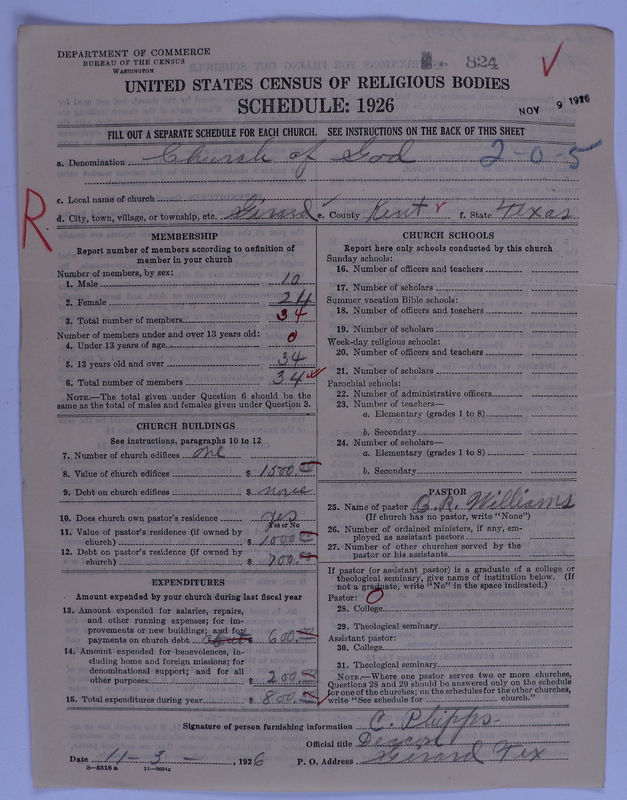 DEPARTMENT OF COMMERCE
BUREAU OF THE CENSUS
WASHINGTON
824
UNITED STATES CENSUS OF RELIGIOUS BODIES
SCHEDULE: 1926
NOV 9 1926
FILL OUT A SEPARATE SCHEDULE FOR EACH CHURCH. SEE INSTRUCTIONS ON THE BACK OF THIS SHEET
a. Denomination Church of God 2-0-5
c. Local name of church
R
d. City, town, village, or township, etc. Girard e. County Kent f. State Texas
MEMBERSHIP
Report number of members according to definition of
member in your church
Number of members, by sex:
1. Male 10
2. Female 24
3. Total number of members 34
Number of members under and over 13 years old:
4. Under 13 years of age 0
5. 13 years old and over 34
6. Total number of members 34
NOTE.—The total given under Question 6 should be
same as the total of males and females given under Question 3.
CHURCH BUILDINGS
See instructions, paragraphs 10 to 12
7. Number of church edifices one
8. Value of church edifices $ 1500.00
9. Debt on church edifices $ none
10. Does church own pastor's residence yes
Yes or No
11. Value of pastor's residence (if owned by
church) $ 1000.00
12. Debt on pastor's residence (if owned by
church) $ 700.00
EXPENDITURES
Amount expended by your church during last fiscal year
13. Amount expended for salaries, repairs,
and other running expenses; for im-
provements or new buildings; and for
payments on church debt about $ 600.00
14. Amount expended for benevolences, in-
cluding home and foreign missions; for
denominational support; and for all
other purposes $ 200.00
15. Total expenditures during year $ 800.00
CHURCH SCHOOLS
Report here only schools conducted by this church
Sunday schools:
16. Number of officers and teachers
17. Number of scholars
Summer vacation Bible schools:
18. Number of officers and teachers
19. Number of scholars
Week-day religious schools:
20. Number of officers and teachers
21. Number of scholars
Parochial schools:
22. Number of administrative officers
23. Number of teachers—
a. Elementary (grades 1 to 8)
b. Secondary
24. Number of scholars—
a. Elementary (grades 1 to 8)
b. Secondary
PASTOR
25. Name of pastor Williams
(If church has no pastor, write "None")
26. Number of ordained ministers, if any, em-
ployed as assistant pastors
27. Number of other churches served by the
pastor or his assistants
If pastor (or assistant pastor) is a graduate of a college or
theological seminary, give name of institution below. (If
not a graduate, write "No" in the space indicated.)
Pastor: 0
28. College
29. Theological seminary
Assistant pastor:
30. College
31. Theological seminary
NOTE.—Where one pastor serves two or more churches,
Questions 28 and 29 should be answered only on the schedule
for one of the churches; on the schedules for the other churches,
write "See schedule for church."
Signature of person furnishing information C. Phipps
Official title Deacon
Date 11-3-, 1926 P. O. Address Girard Tex